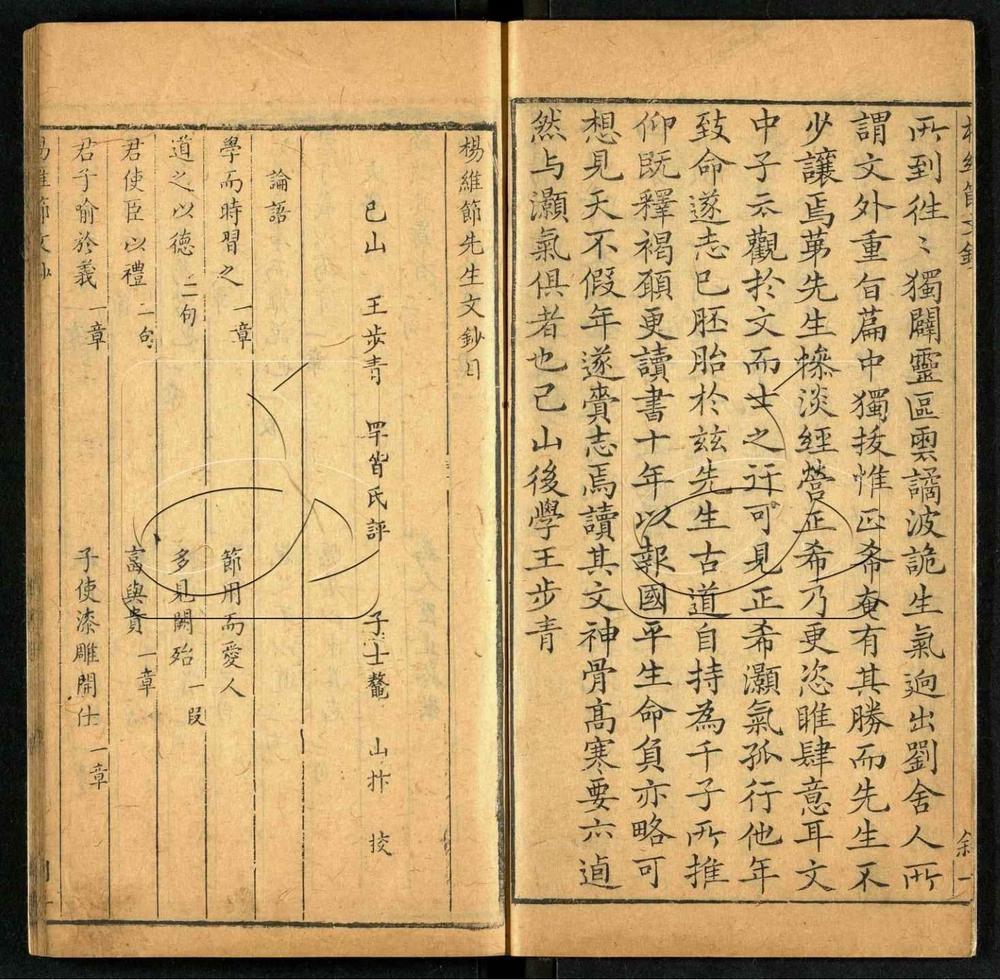 所到徃〻獨闢靈區雲譎波詭生氣逈出劉舍人所
謂文外重旨篇中獨拔惟正希奄有其勝而先生不
少讓焉苐先生慘淡經營正希乃更恣睢肆意耳文
中子云觀於文而士之行可見正希灝氣孤行他年
致命遂志已胚胎於兹先生古道自持為千子所推
仰既釋褐願更讀書十年以報國平生命負亦略可
想見天不假年遂賫志焉讀其文神骨高寒要亦逌
然与灝氣俱者也己山後學王步青
叙一
楊維節先生文鈔目
已山 王步青 罕皆氏評 子士鼇 山抃 挍
論語
學而時習之 一章 節用而愛人
道之以德 二句 多見闕殆 一段
君使臣以禮 二句 富與貴 一章
君子喻於義 一章 子使漆雕開仕 一章